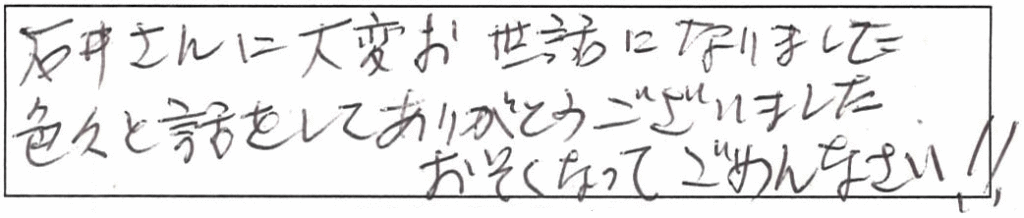 石井さんに大変お世話になりました
色々と話をしてありがとうございました
おそくなってごめんなさい!!